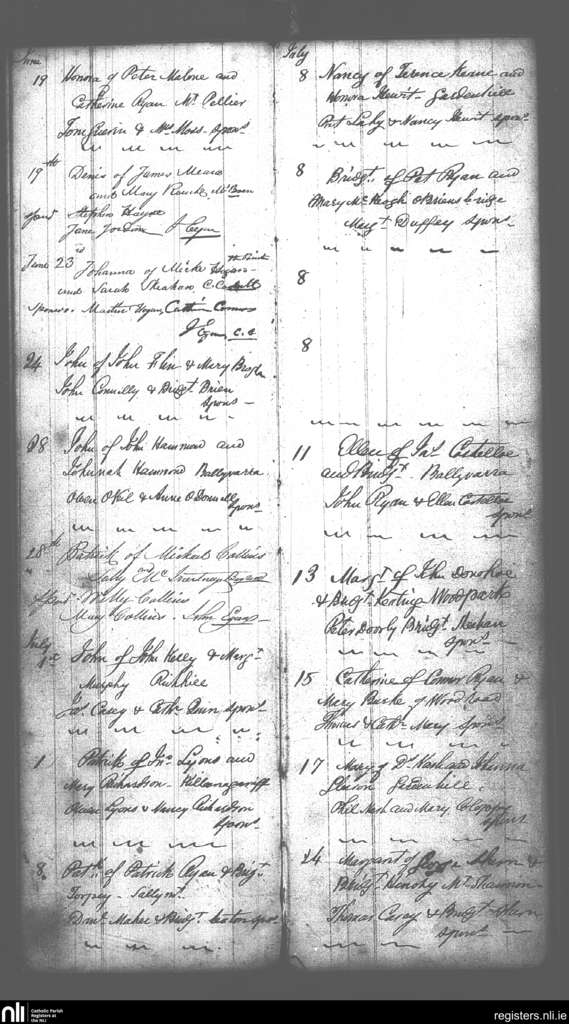 June
19 Honora of Peter Malone and
Catherine Ryan Mt Pellier
Tom Guerin & Mrs Moss Spons
19th Denis of James Meara
and Mary Rourke
Spons Stephen Hayes
Jane Jordan J Egan
June 23 Johanna of Micke Hogan
and Sarah Sheahan
Sponsors Martin Hogan, Cathrin Connors
J Egan C.C.
24 John of John Flin & Mary
John Connilly & Bridgt Brien
Spons
28 John of John Hammond and
Johanah Hammond Ballyvarra
Owen ONeil & Anne ODonnell
Spons
28th Patrick of Michael Collins
Sally Mc
Spons Willy Collins
Mary Collins. John Egan
July
1st John of John Kelly & Margt
Murphy
Jas Casey & Cathn Spons
1 Patrick of Jno Lyons and
Mary Richardson
Owen Lyons & Nancy Richardson
Spons
8 Patk of Patrick Ryan & Bridgt
Torpey
Danl Maher & Bridgt Spons
July
8 Nancy of Terence Keane and
Honora Hewit Gardenhill
Pat Lahy & Nancy Hewit Spons
8 Bridgt of Pat Ryan and
Mary McKeogh OBriens bridge
Margt Duffey Spons
8
8
11 Ellen of Jas Costelloe
and Bridgt Ballyvarra
John Ryan & Ellen Costelloe
Spons
13 Margt of John Donohoe
& Bridgt Keating Woodpark
Peter Doorly Bridgt Meehan
Spons
15 Catherine of Connor Ryan &
Mary Burke of Wood road
Thomas & Cathn Mary Spons
17 Mary of Ds Nash and Johanna
Gardenhill
Phil Nash and Mary
Spons
24 Margaret of Ahern &
Bridgt Mt Shannon
Thomas Casey & Bridgt Ahern
Spons
nli
Catholic Parish
Registers at
the NLI
registers.nli.ie